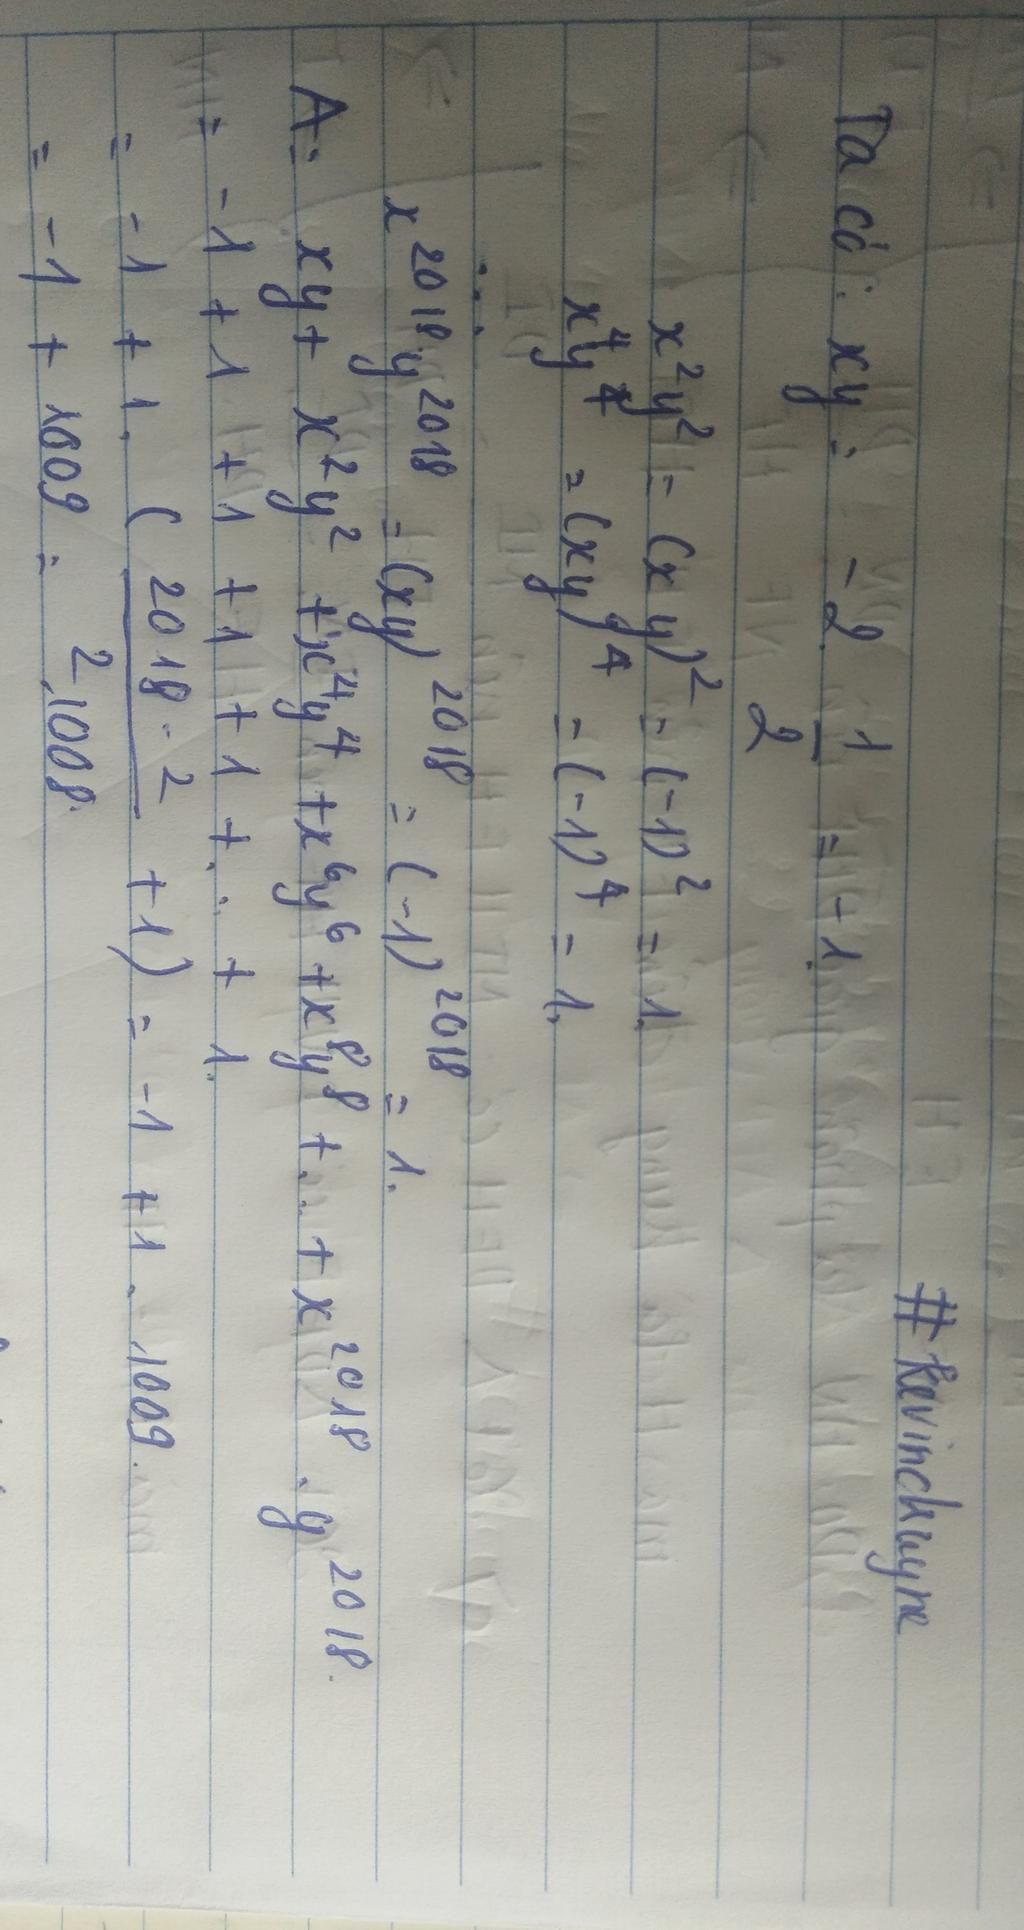 #kevinchuyne
Ta có: xy = -2 . 1/2 = -1.
x²y² = (xy)² = (-1)² = 1.
x⁴y⁴ = (xy)⁴ = (-1)⁴ = 1.
...
x²⁰¹⁸.y²⁰¹⁸ = (xy)²⁰¹⁸ = (-1)²⁰¹⁸ = 1.
A = xy + x²y² + x⁴y⁴ + x⁶y⁶ + x⁸y⁸ + ... + x²⁰¹⁸ . y²⁰¹⁸.
= -1 + 1 + 1 + 1 + 1 + ... + 1.
= -1 + 1. (2018 - 2 / 2 + 1) = -1 + 1 . 1009.
= -1 + 1009 = 1008.